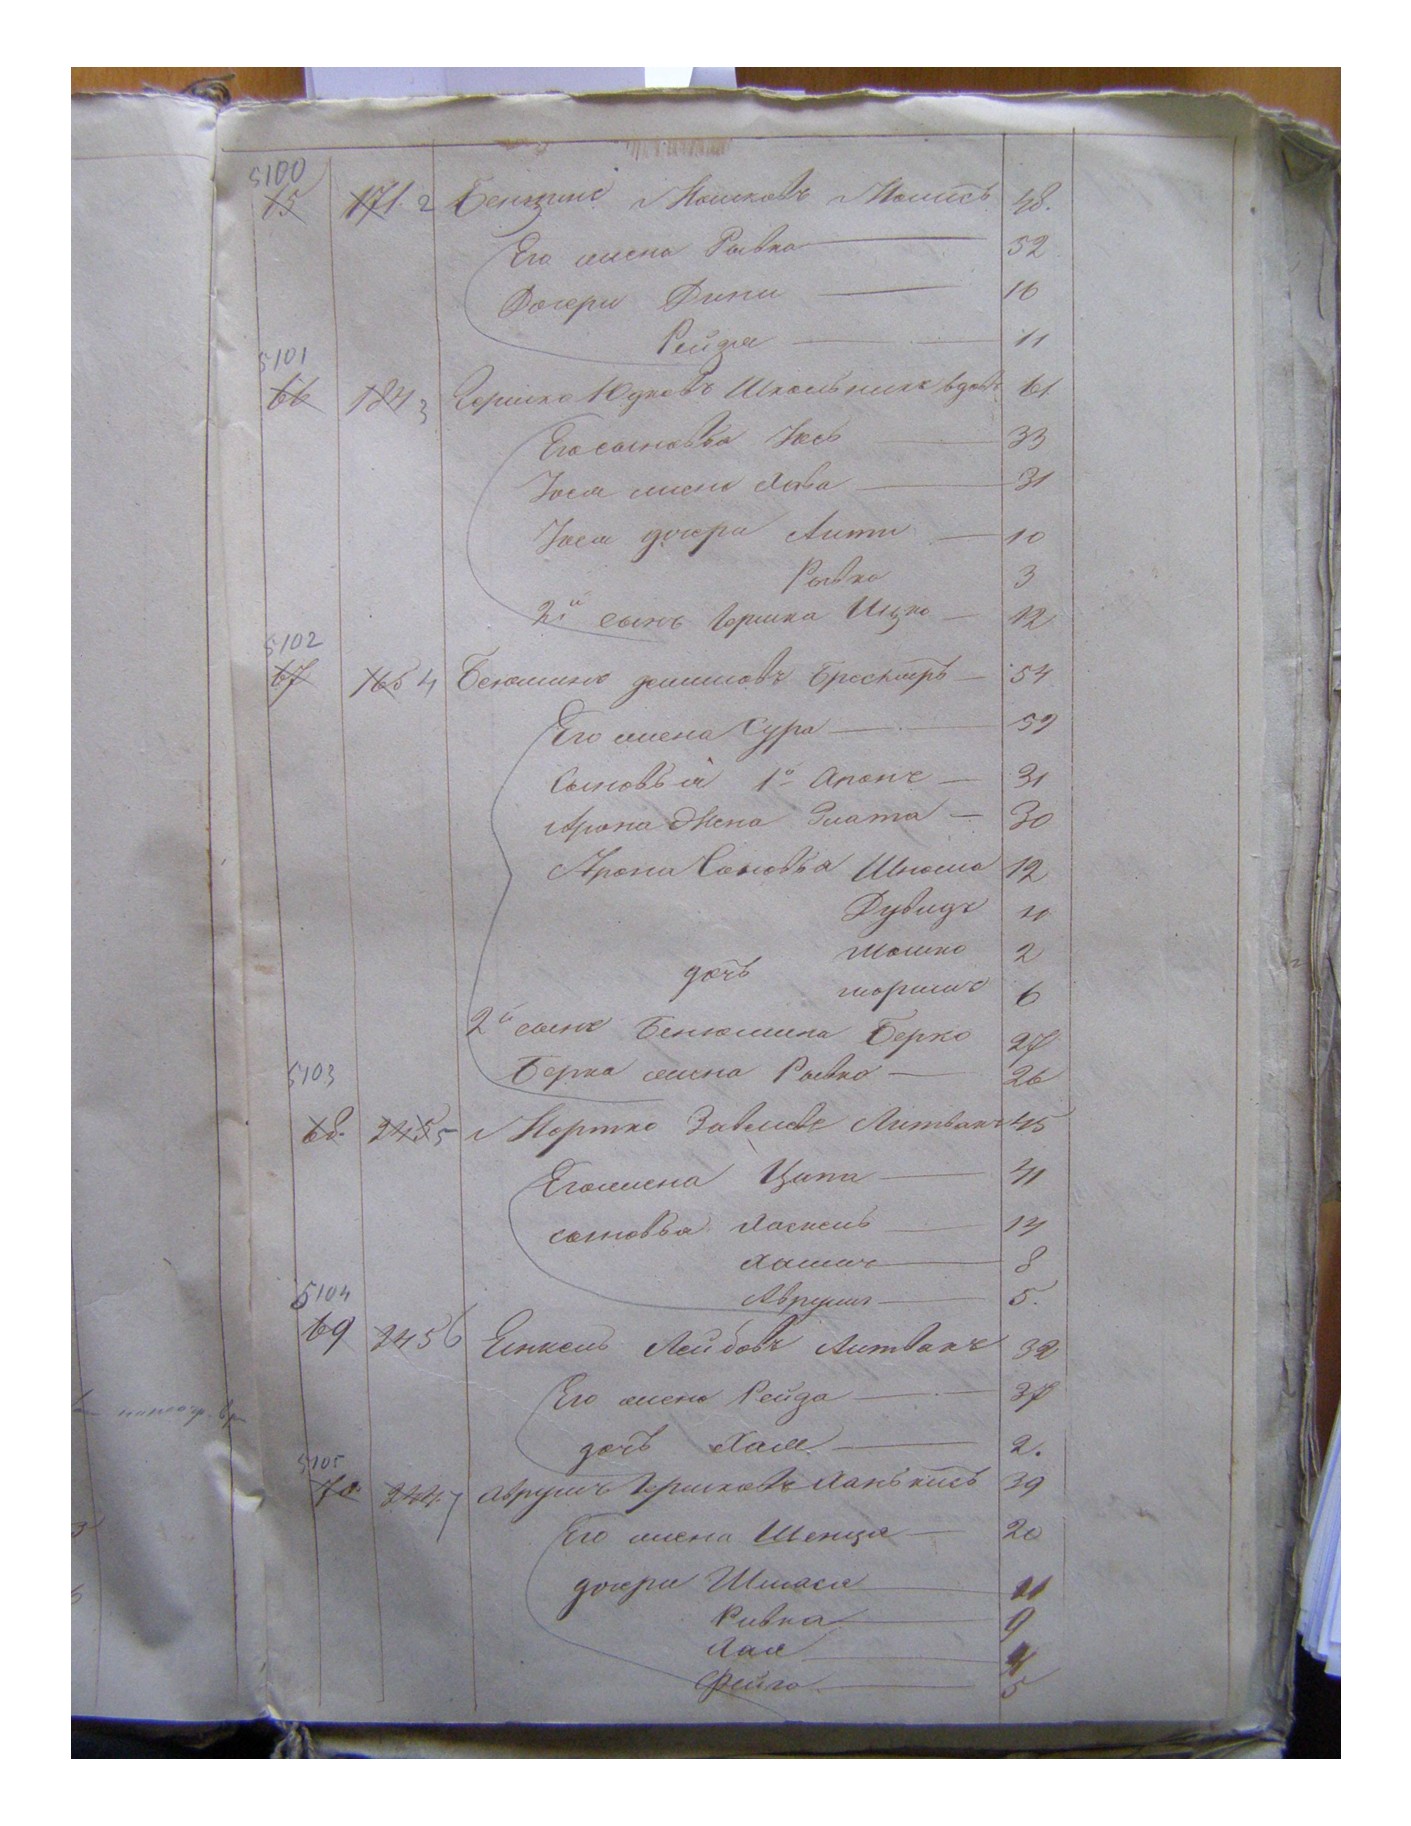 5100
15 171 2 Бенцинъ Мошковъ 48.
Его жена Рывка 52
Дочери Дини 16
Рейзя 11
5101
66 184 3 Гершко Юдковъ Школьникъ вдовъ 61
Его сыновья Іось 33
Іося жена Хава 31
Іося дочери 10
Рывка 3
2й сынъ Гершка Ицко 12
5102
67 165 4 Бенюминъ 54
Его жена Сура 59
Сыновья 1й Аронъ 31
Арона Жена Злата 30
Арона Сыновья Шлома 12
Дувидъ 11
Мошко 2
дочь 6
2й сынъ Бенюмина Берко 27
Берка жена Рывка 26
5103
68. 245 5 Мортко Литвакъ 45
Его жена Ципа 41
сыновья Хаскель 14
Хаимъ 8
Аврумъ 5.
5104
69 245 6 Янкель Лейбовъ Литвакъ 39
Его жена Рейза 37
дочь Хая 2.
5105
70 244 7 Аврумъ Гершковъ 39
Его жена Шейндя 20
дочери 11
Ривка 9
Хая
Фейга 5